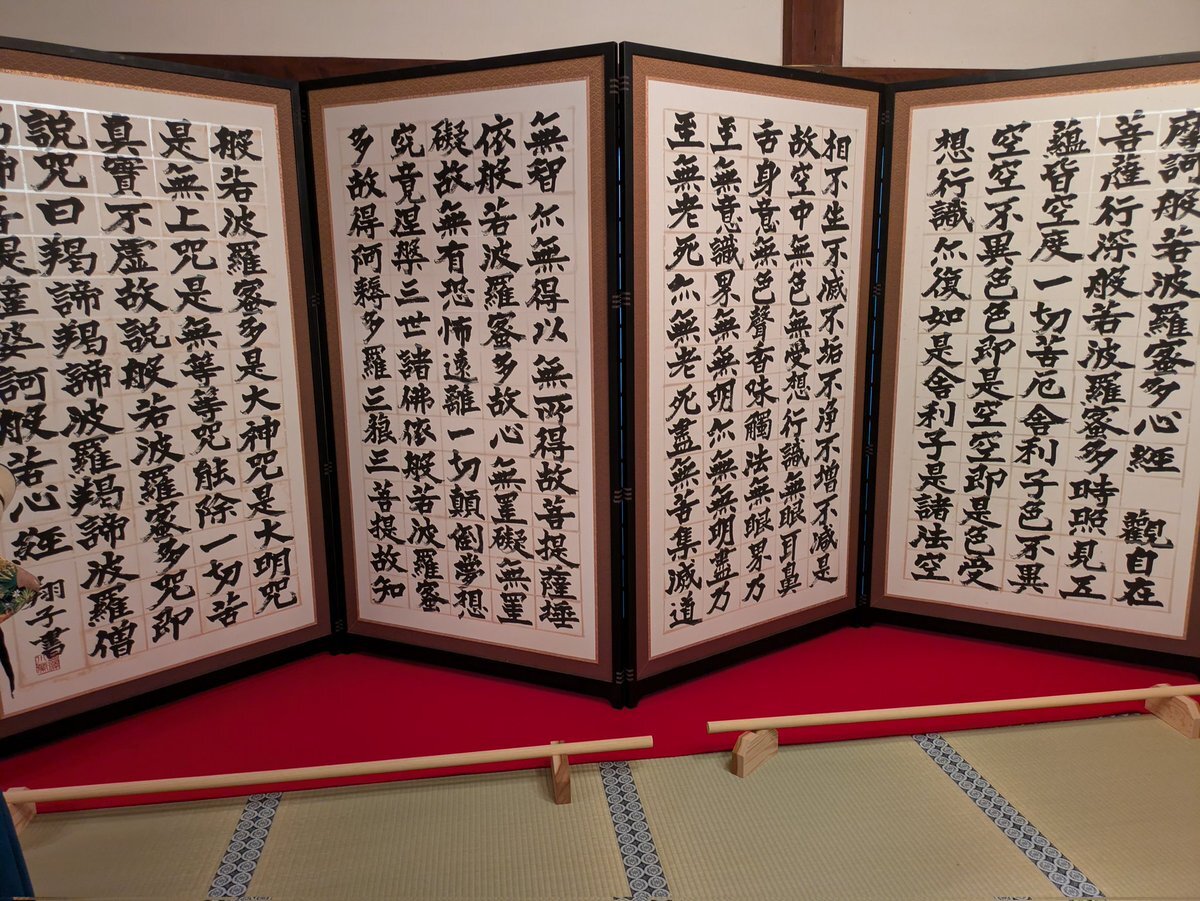 摩訶般若波羅蜜多心経 觀自在
菩薩行深般若波羅蜜多時照見五
蘊皆空度一切苦厄舍利子色不異
空空不異色色即是空空即是色受
想行識亦復如是舍利子是諸法空
相不生不滅不垢不浄不増不減是
故空中無色無受想行識無眼耳鼻
舌身意無色聲香味觸法無眼界乃
至無意識界無無明亦無無明盡乃
至無老死亦無老死盡無苦集滅道
無智亦無得以無所得故菩提薩埵
依般若波羅蜜多故心無罣礙無罣
礙故無有恐怖遠離一切顛倒夢想
究竟涅槃三世諸佛依般若波羅蜜
多故得阿耨多羅三藐三菩提故知
般若波羅蜜多是大神咒是大明咒
是無上咒是無等等咒能除一切苦
真實不虚故説般若波羅蜜多咒即
説咒曰羯諦羯諦波羅羯諦波羅僧
羯諦菩提薩婆訶般若心経 翔子書